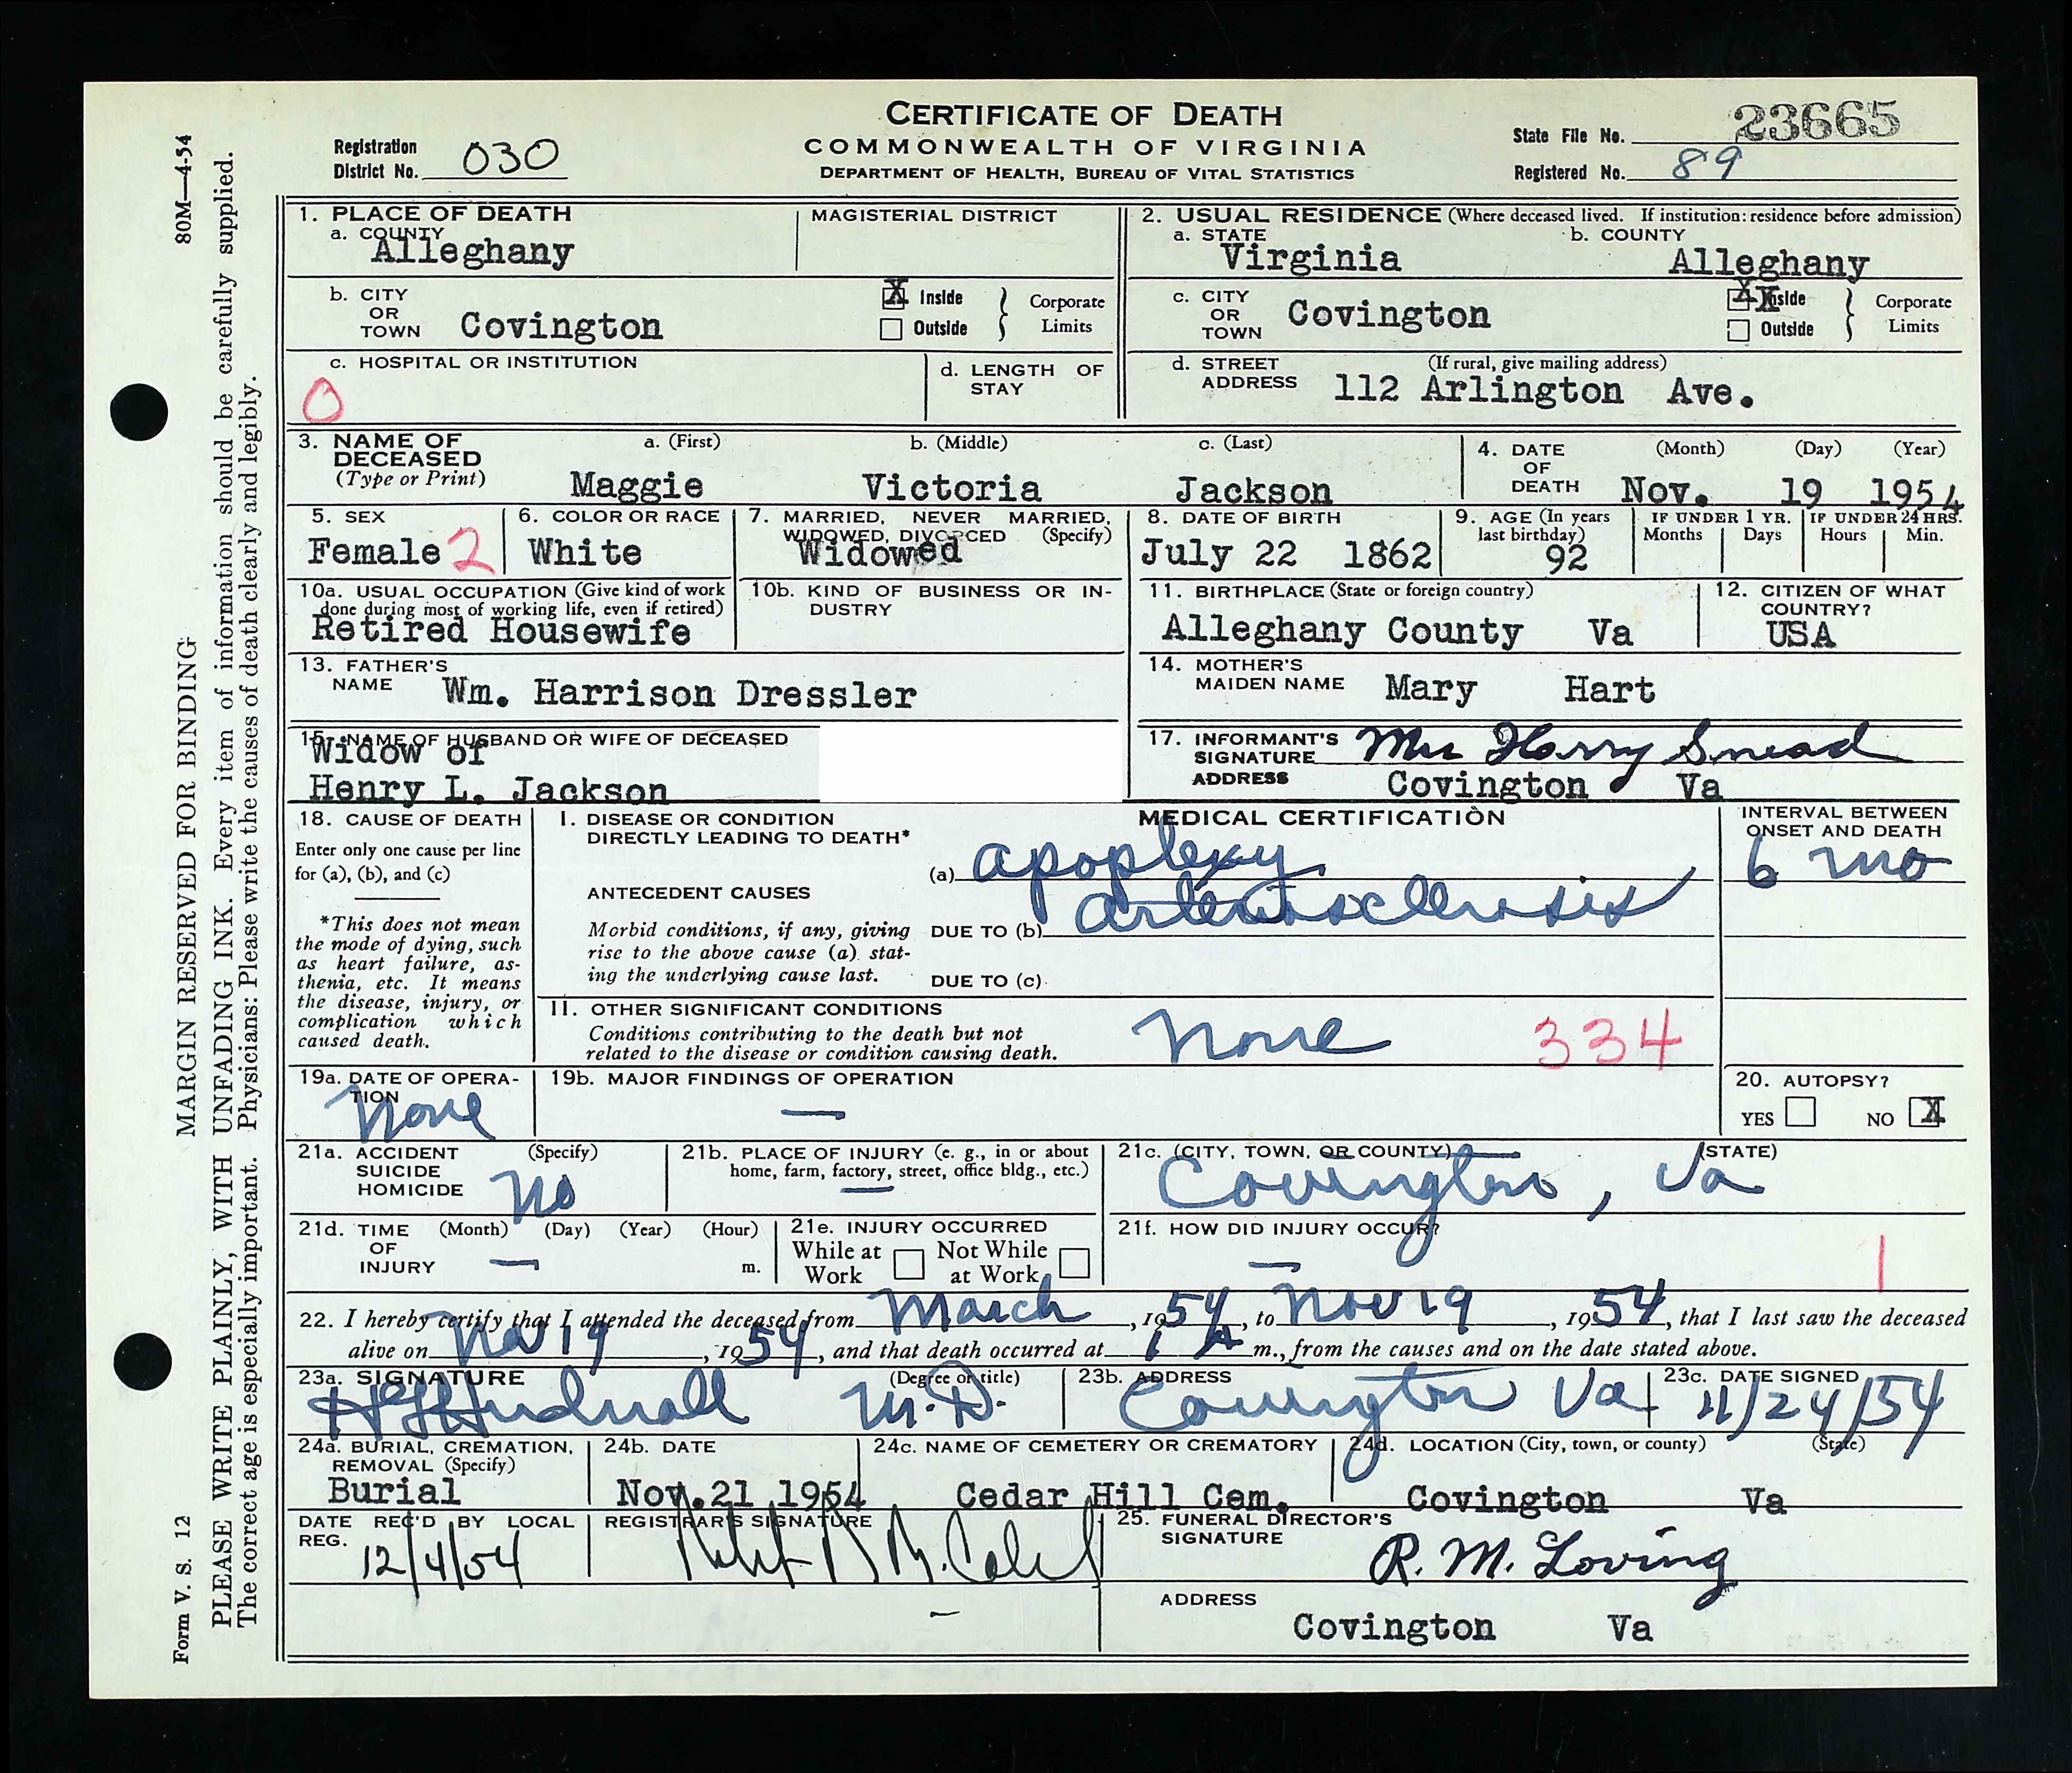 CERTIFICATE OF DEATH
COMMONWEALTH OF VIRGINIA
DEPARTMENT OF HEALTH, BUREAU OF VITAL STATISTICS
Registration District No. 030
State File No. 23665
Registered No. 89
80M—4-54
MARGIN RESERVED FOR BINDING
PLEASE WRITE PLAINLY, WITH UNFADING INK. Every item of information should be carefully supplied.
The correct age is especially important. Physicians: Please write the causes of death clearly and legibly.
Form V. S. 12
1. PLACE OF DEATH
a. COUNTY Alleghany
MAGISTERIAL DISTRICT
b. CITY OR TOWN Covington
X Inside Outside } Corporate Limits
c. HOSPITAL OR INSTITUTION
0
d. LENGTH OF STAY
2. USUAL RESIDENCE (Where deceased lived. If institution: residence before admission)
a. STATE Virginia
b. COUNTY Alleghany
c. CITY OR TOWN Covington
XX Inside Outside } Corporate Limits
d. STREET ADDRESS (If rural, give mailing address) 112 Arlington Ave.
3. NAME OF DECEASED (Type or Print)
a. (First) Maggie
b. (Middle) Victoria
c. (Last) Jackson
4. DATE OF DEATH (Month) (Day) (Year) Nov. 19 1954
5. SEX Female 2
6. COLOR OR RACE White
7. MARRIED, NEVER MARRIED, WIDOWED, DIVORCED (Specify) Widowed
8. DATE OF BIRTH July 22 1862
9. AGE (In years last birthday) 92
IF UNDER 1 YR. Months Days
IF UNDER 24 HRS. Hours Min.
10a. USUAL OCCUPATION (Give kind of work done during most of working life, even if retired) Retired Housewife
10b. KIND OF BUSINESS OR INDUSTRY
11. BIRTHPLACE (State or foreign country) Alleghany County Va
12. CITIZEN OF WHAT COUNTRY? USA
13. FATHER'S NAME Wm. Harrison Dressler
14. MOTHER'S MAIDEN NAME Mary Hart
15. NAME OF HUSBAND OR WIFE OF DECEASED
Widow of
Henry L. Jackson
17. INFORMANT'S SIGNATURE Mrs Harry Smead
ADDRESS Covington Va
18. CAUSE OF DEATH
Enter only one cause per line for (a), (b), and (c)
*This does not mean the mode of dying, such as heart failure, asthenia, etc. It means the disease, injury, or complication which caused death.
MEDICAL CERTIFICATION
I. DISEASE OR CONDITION DIRECTLY LEADING TO DEATH*
(a) apoplexy
INTERVAL BETWEEN ONSET AND DEATH
6 mo
ANTECEDENT CAUSES
Morbid conditions, if any, giving rise to the above cause (a) stating the underlying cause last.
DUE TO (b) arteriosclerosis
DUE TO (c)
II. OTHER SIGNIFICANT CONDITIONS
Conditions contributing to the death but not related to the disease or condition causing death.
None
334
19a. DATE OF OPERATION None
19b. MAJOR FINDINGS OF OPERATION —
20. AUTOPSY? YES NO X
21a. ACCIDENT SUICIDE HOMICIDE (Specify) No
21b. PLACE OF INJURY (e. g., in or about home, farm, factory, street, office bldg., etc.) —
21c. (CITY, TOWN, OR COUNTY) (STATE)
Covington, Va
21d. TIME OF INJURY (Month) (Day) (Year) (Hour) m. —
21e. INJURY OCCURRED While at Work Not While at Work
21f. HOW DID INJURY OCCUR? —
1
22. I hereby certify that I attended the deceased from March, 1954, to Nov 19, 1954, that I last saw the deceased
alive on Nov 19, 1954, and that death occurred at 1 A m., from the causes and on the date stated above.
23a. SIGNATURE (Degree or title) Hudnall M.D.
23b. ADDRESS Covington Va
23c. DATE SIGNED 11/24/54
24a. BURIAL, CREMATION, REMOVAL (Specify) Burial
24b. DATE Nov. 21 1954
24c. NAME OF CEMETERY OR CREMATORY Cedar Hill Cem.
24d. LOCATION (City, town, or county) (State) Covington Va
DATE REC'D BY LOCAL REG. 12/4/54
REGISTRAR'S SIGNATURE
25. FUNERAL DIRECTOR'S SIGNATURE R. M. Loving
ADDRESS Covington Va